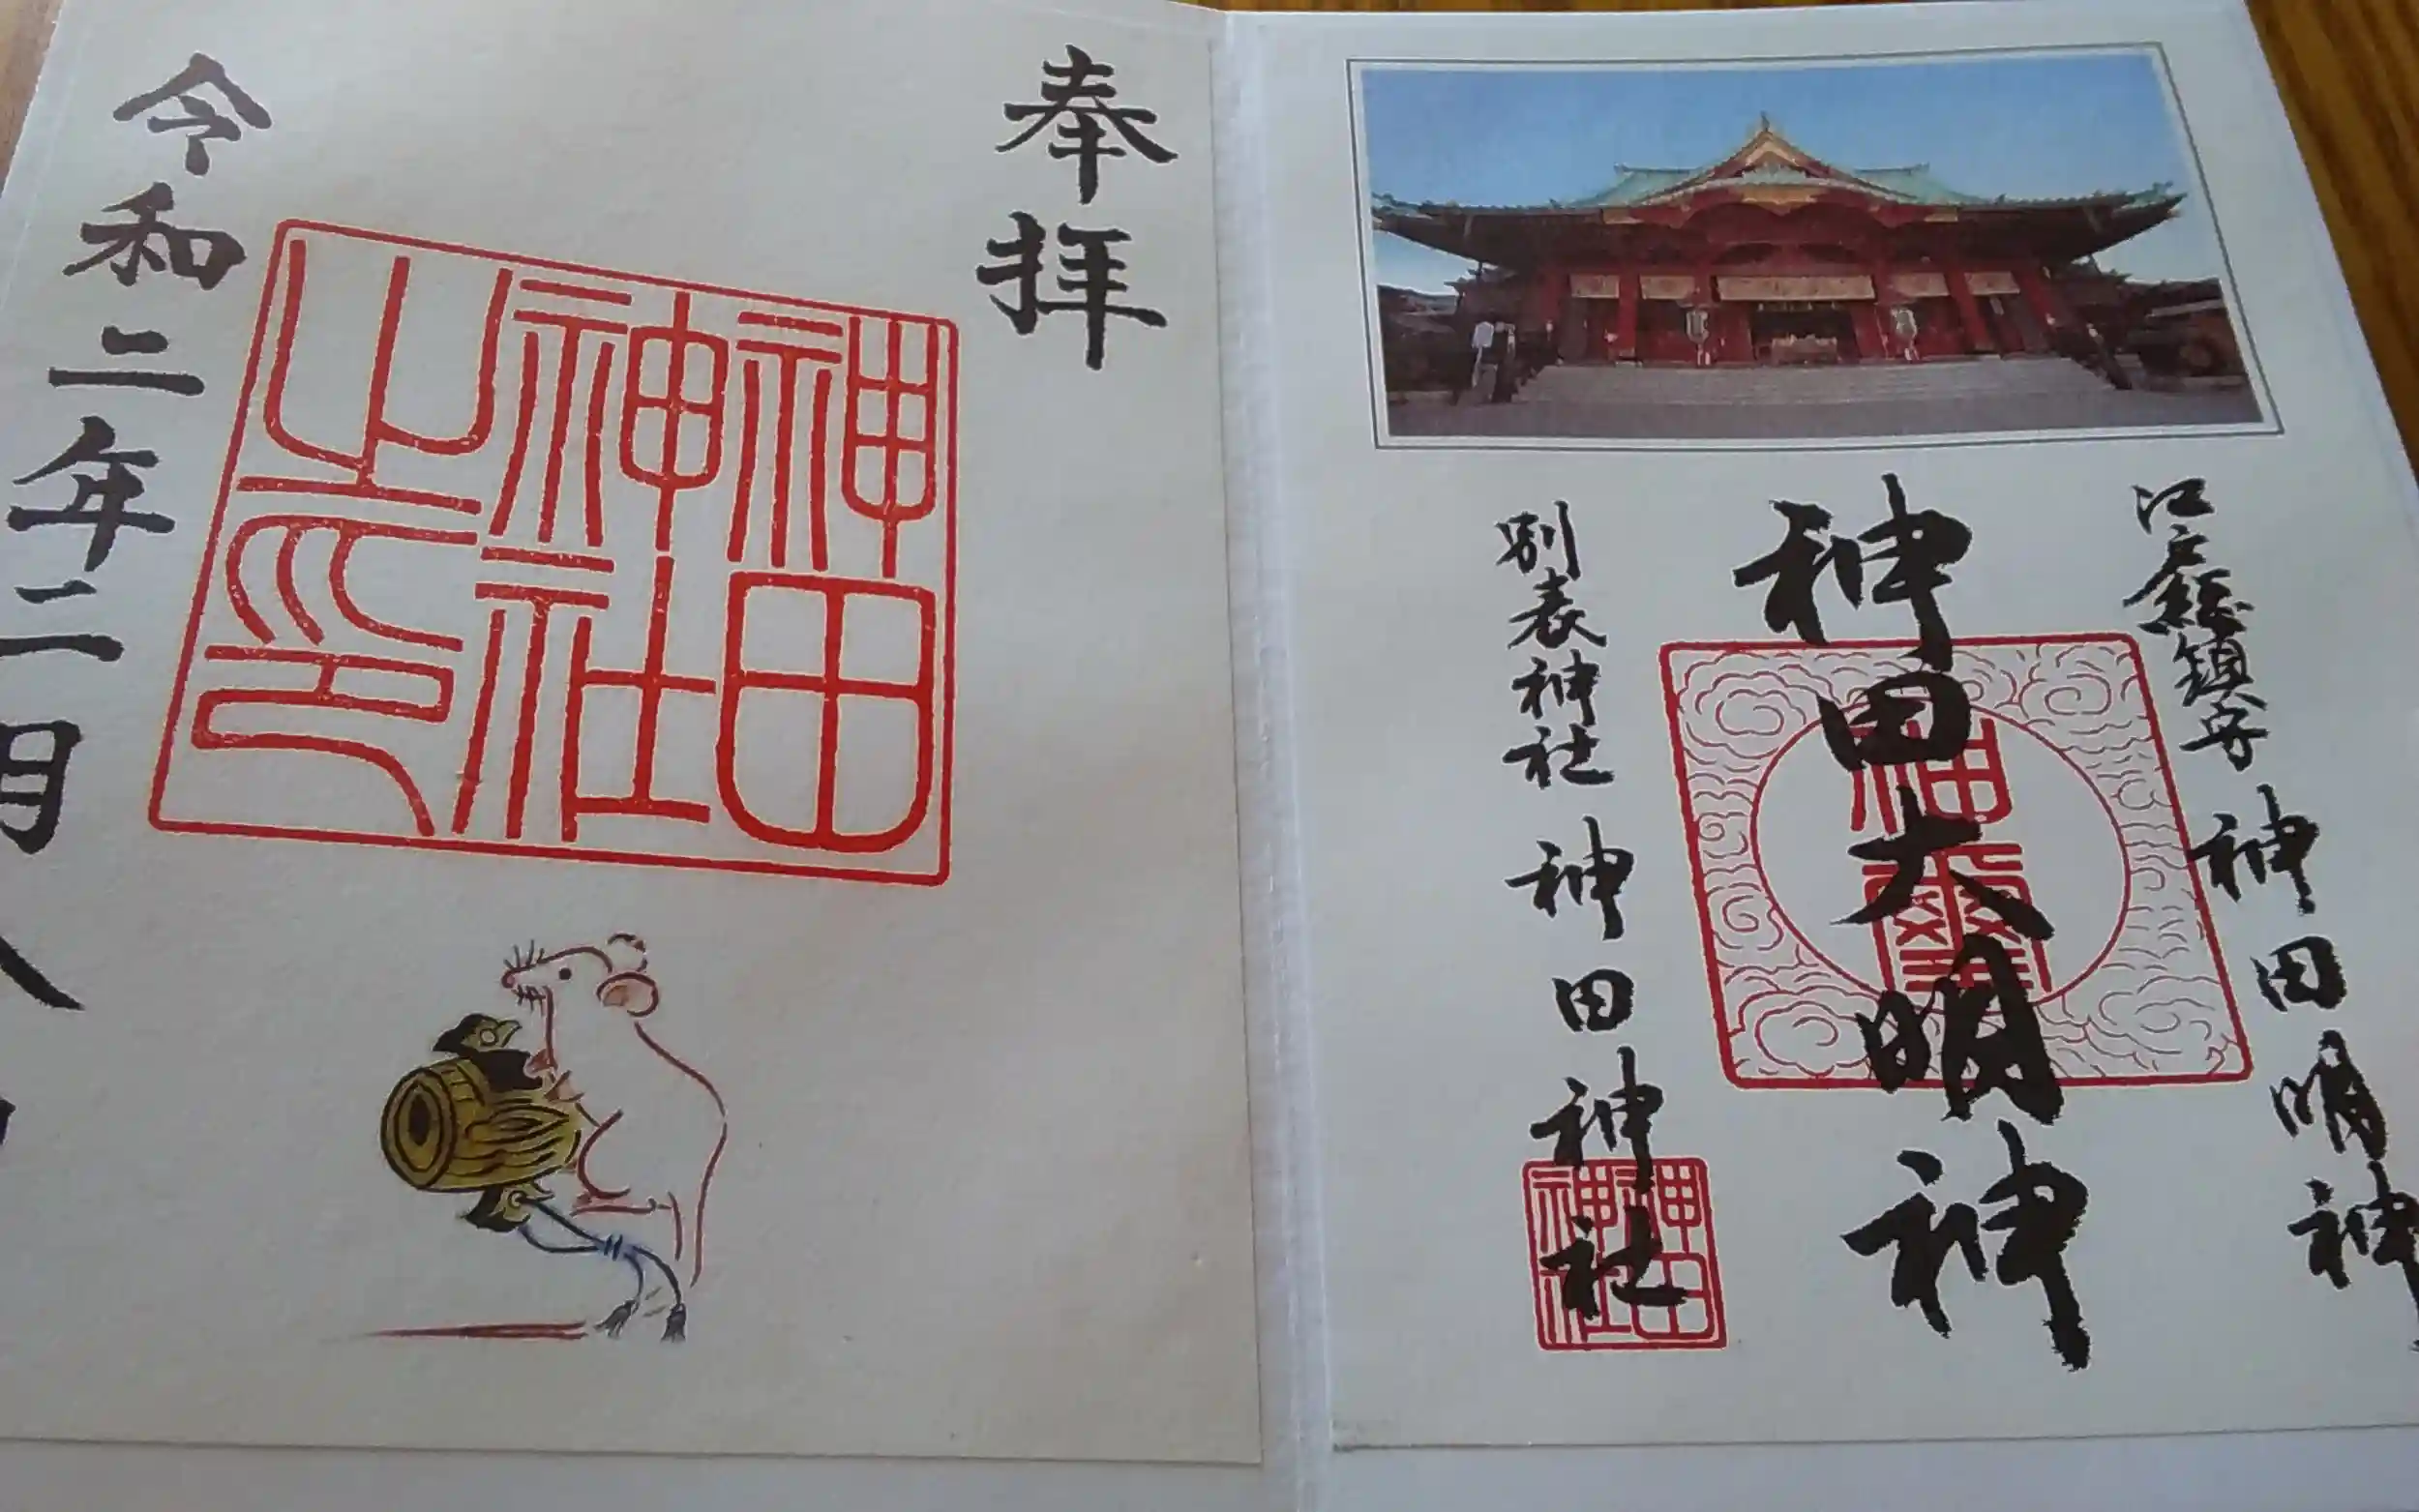 奉拝
神田
神社
之印
令和二年二月八
江戸総鎮守 神田明神
神田大明神
神璽
別表神社 神田神社
神田
神社